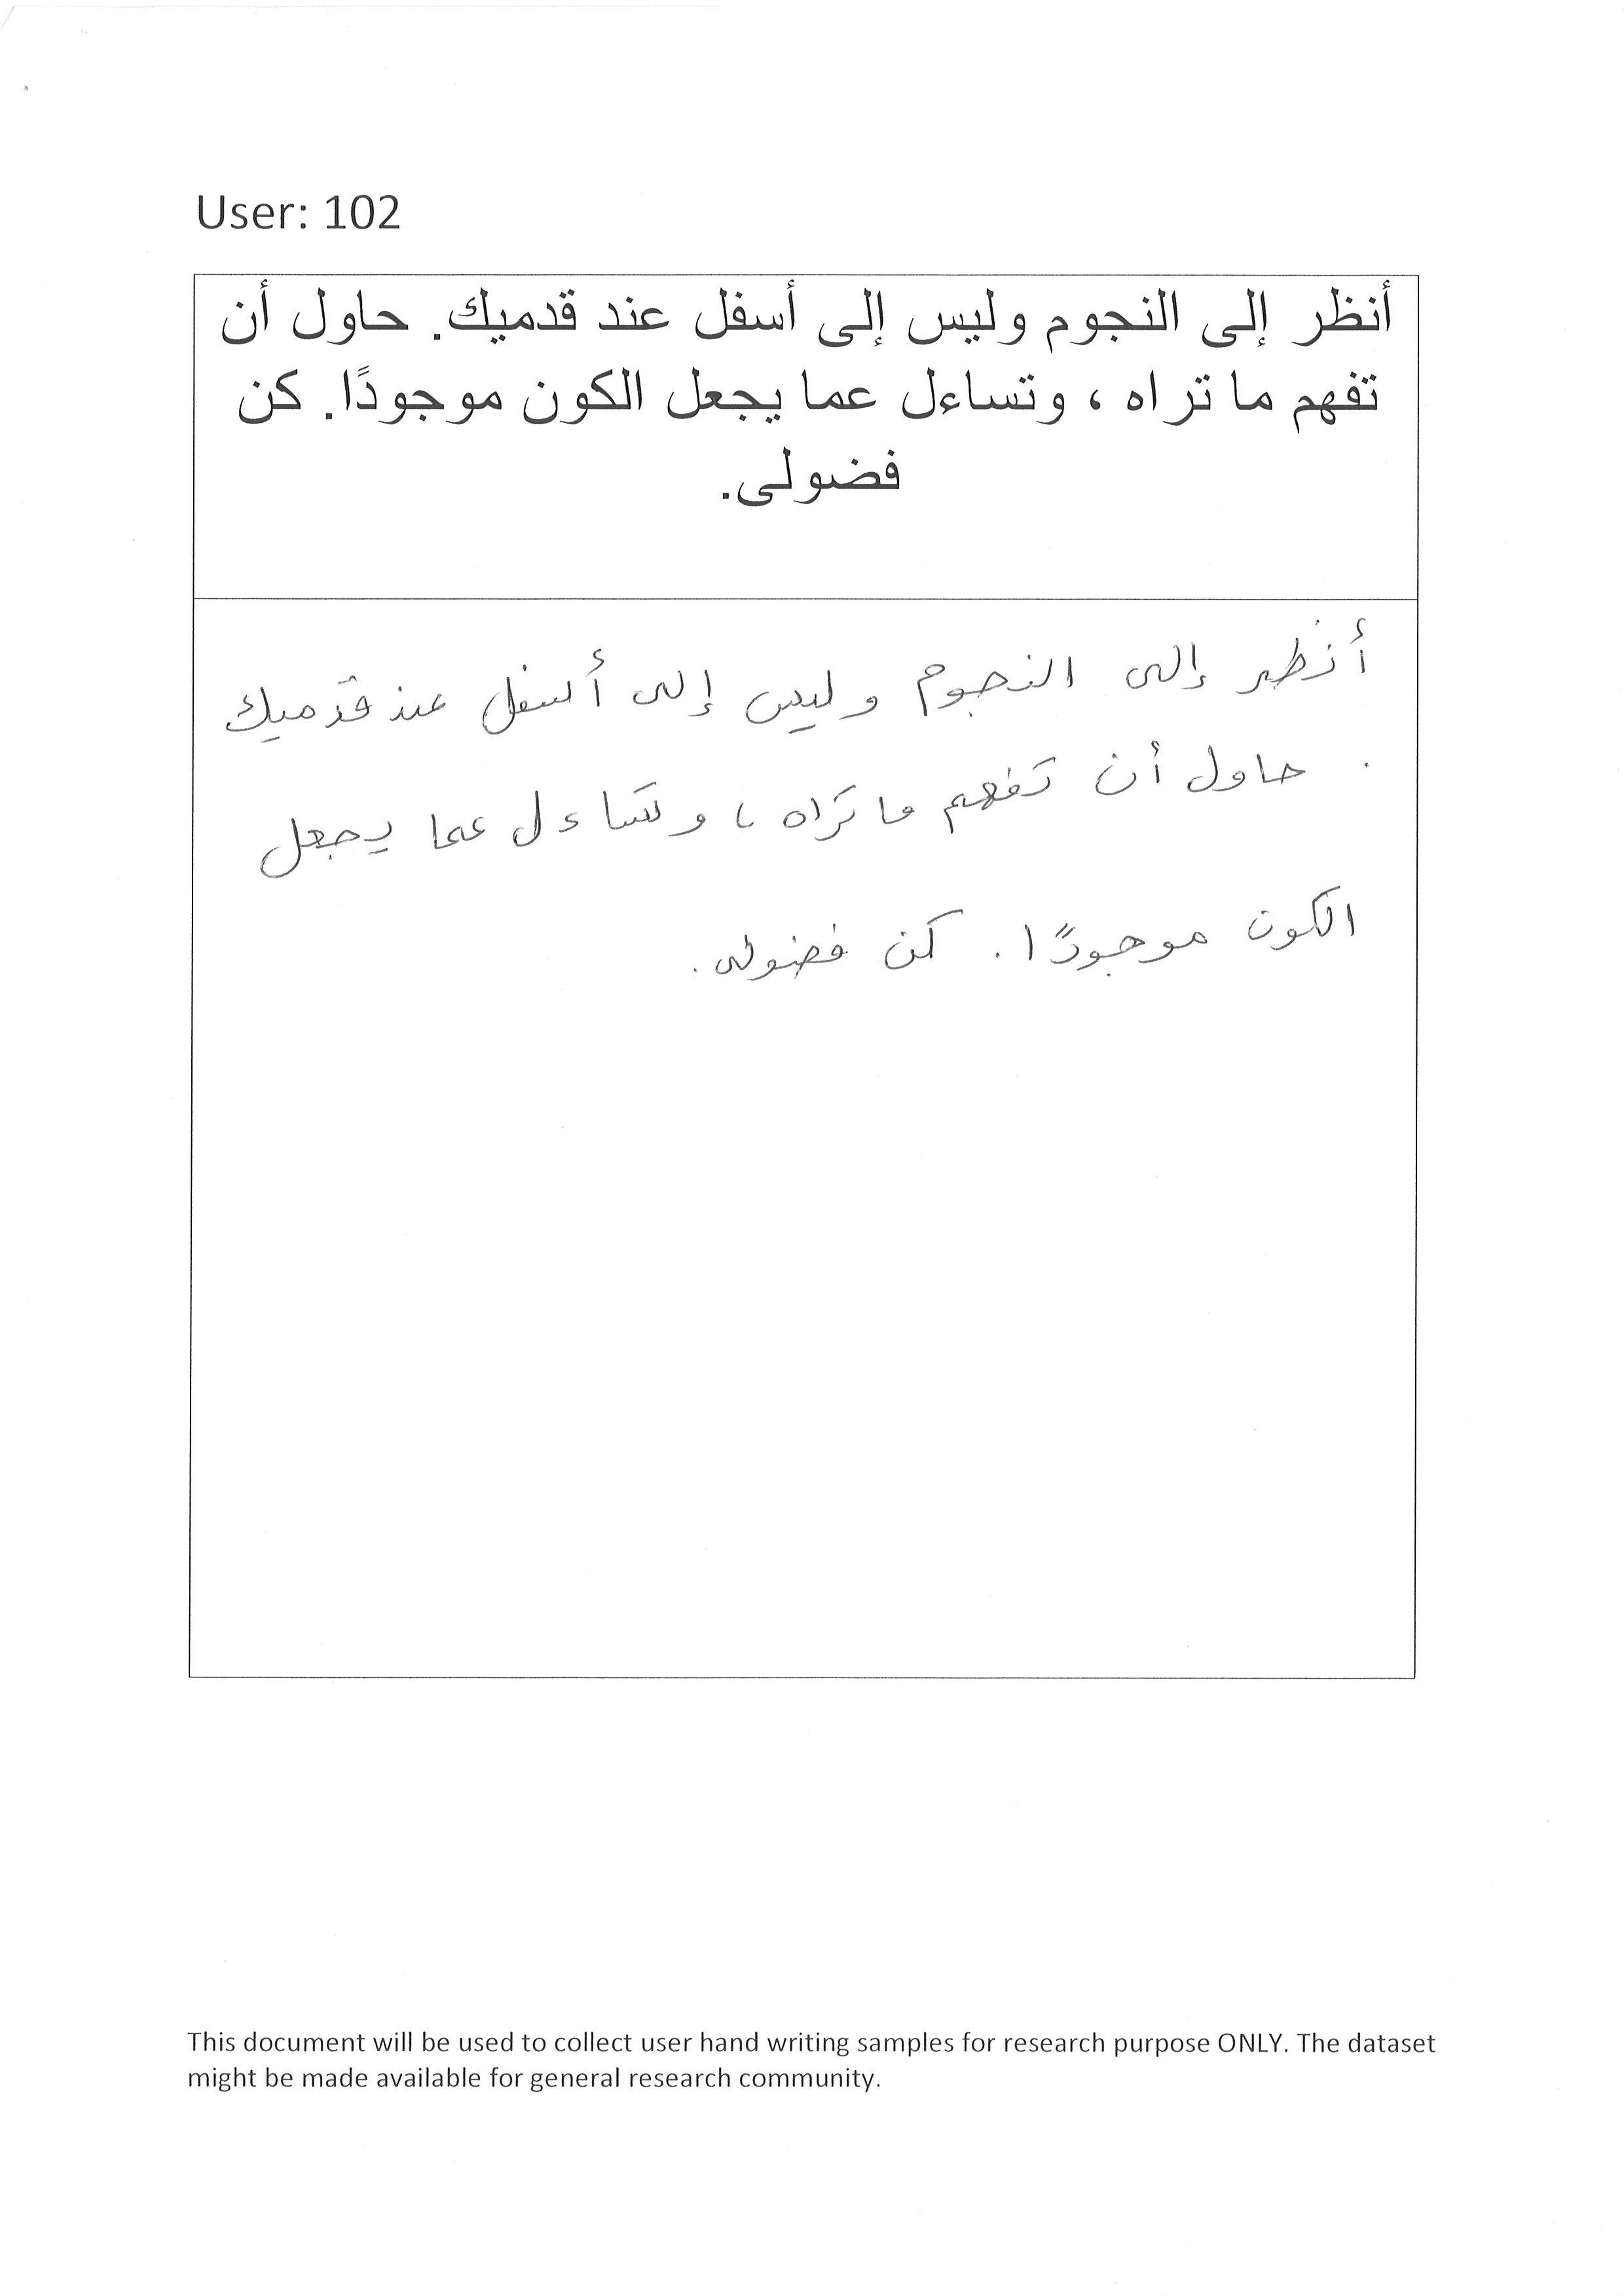 User: 102
أنظر إلى النجوم وليس إلى أسفل عند قدميك. حاول أن
تفهم ما تراه ، وتساءل عما يجعل الكون موجودًا. كن
فضولى.
أنظر إلى النجوم وليس إلى أسفل عند قدميك
. حاول أن تفهم ما تراه ، وتساءل عما يجعل
الكون موجودًا. كن فضولى.
This document will be used to collect user hand writing samples for research purpose ONLY. The dataset
might be made available for general research community.